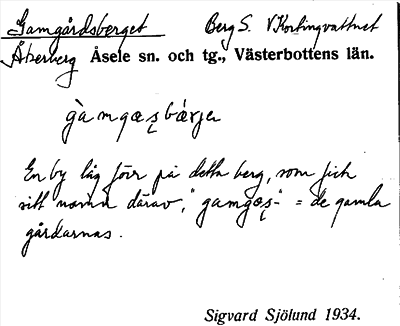 Gamgårdsberget Berg S. V Kortingvattnet
Åkerberg Åsele sn. och tg., Västerbottens län.
gàmgœs̨bærjer
En by låg förr på detta berg, som fick
sitt namn därav, "gamgœs̨-" = de gamla
gårdarnas.
Sigvard Sjölund 1934.